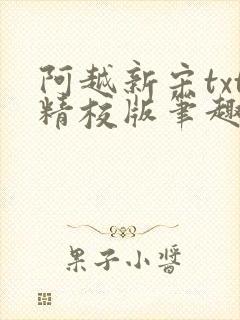 阿越新宋txt
精校版笔趣
果子小酱